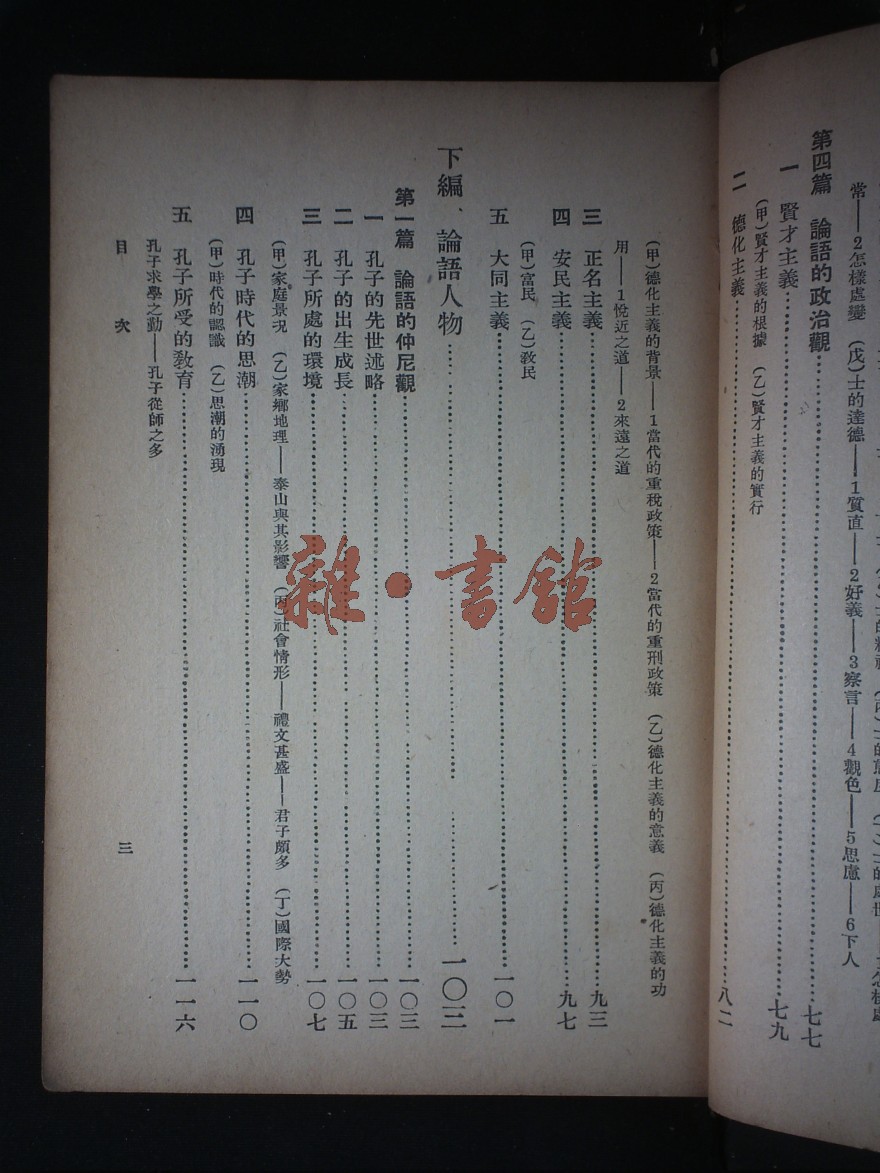 常——2怎樣處變　(戊)士的達德——1質直——2好義——3察言——4觀色——5思慮——6下人
第四篇　論語的政治觀……七七
一　賢才主義……七九
(甲)賢才主義的根據　(乙)賢才主義的實行
二　德化主義……八二
(甲)德化主義的背景——1當代的重稅政策——2當代的重刑政策　(乙)德化主義的意義　(丙)德化主義的功
用——1悅近之道——2來遠之道
三　正名主義……九三
四　安民主義……九七
(甲)富民　(乙)教民
五　大同主義……一〇一
下編、論語人物……一〇三
第一篇　論語的仲尼觀……一〇三
一　孔子的先世述略……一〇三
二　孔子的出生成長……一〇五
三　孔子所處的環境……一〇七
(甲)家庭景況　(乙)家鄉地理——泰山與其影響　(丙)社會情形——禮文甚盛——君子頗多　(丁)國際大勢
四　孔子時代的思潮……一一〇
(甲)時代的認識　(乙)思潮的湧現
五　孔子所受的教育……一一六
孔子求學之勤——孔子從師之多
目　次　三
雜・書館